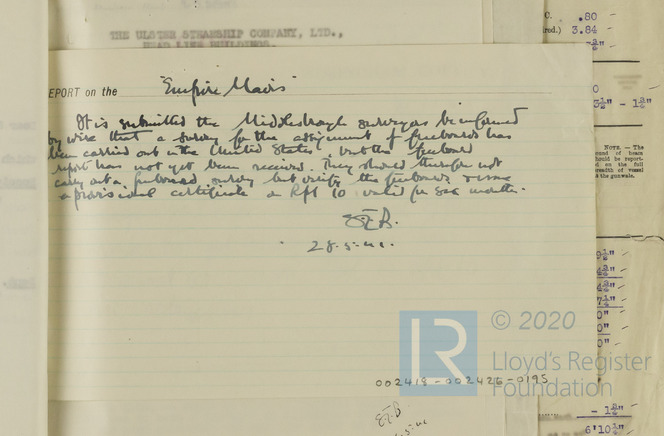 THE ULSTER STEAMSHIP COMPANY, LTD.,
HEAD LINE BUILDINGS,
EPORT on the "Empire Mavis"
It is submitted the Middlesbrough surveyors be informed
by wire that a survey for the assignment of freeboards has
been carried out in the United States but the freeboard
report has not yet been received. They should therefore not
carry out a freeboard survey but verify the freeboards & issue
a provisional certificate on Rpt 10 valid for six months.
E.F.B.
28.5.41.
C. .80
red.) 3.84
NOTE. — The
ound of beam
hould be report-
ed on the full
breadth of vessel
t the gunwale.
- 1 3/4"
6'10 1/2"
LR
© 2020
Lloyd's Register
Foundation
002418-002426-0195
E.F.B